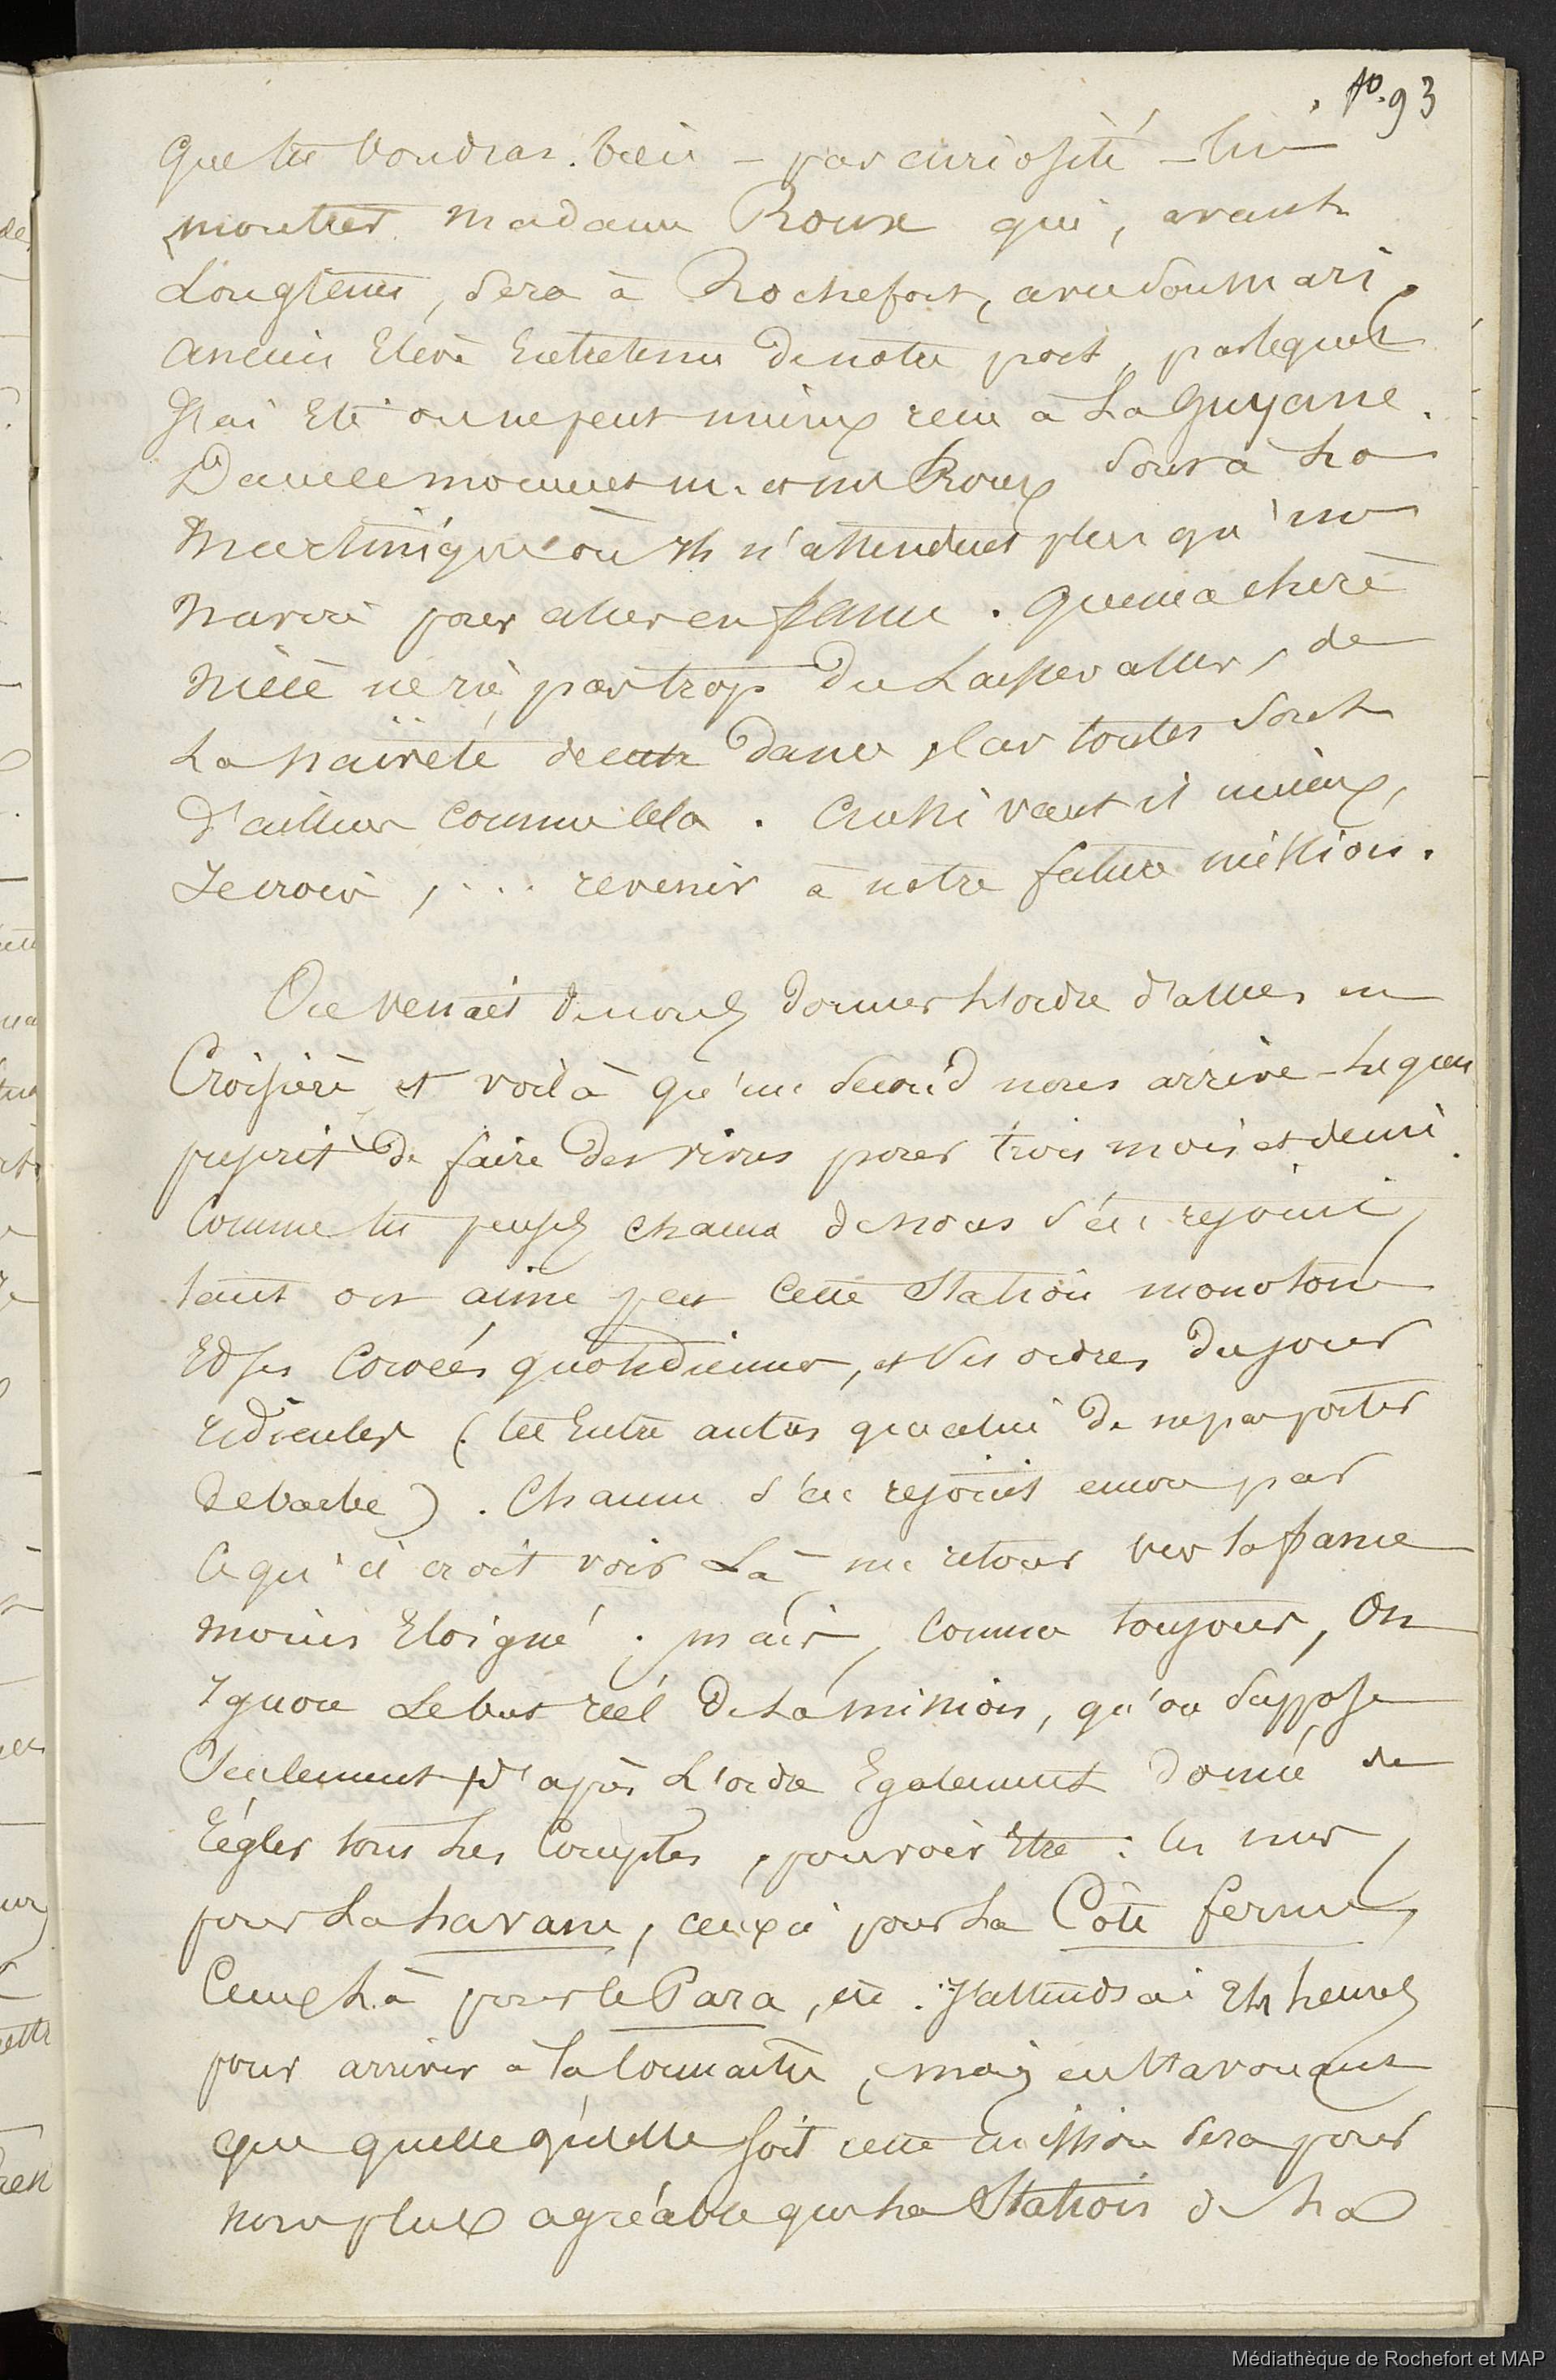 . po. 93
que tu voudras bien – par curiosité – lui
montrer madame Roux qui, avant
Longtems, sera à Rochefort, avec son mari,
ancien Elève Entretenu de notre port, par lequel
J'ai Eté on ne peut mieux recu à La Guyane.
Dans ce moment m. et me Roux sont à La
Martinique où ils n'attendent plus qu'un
navire pour aller en france. que ma chère
nièce ne rie pas trop du Laisser aller, de
La naïveté de cette dame, car toutes sont
d'ailleurs comme cela. Aussi vaut il mieux,
Je crois, . . . revenir à notre future mission.
On venait de nous donner L'ordre d'aller en
Croisière et voilà qu'un second nous arrive – Lequel
prescrit de faire des vivres pour trois mois et demi.
Comme tu penses chacun de nous s'en rejouit,
tant on aime peu cette station monotone
Et ses corvées quotidiennes, et ses ordres du jour
ridicules (tel Entre autres que celui de ne pas porter
de barbe). Chacun s'en rejouit encore par
ce qu'il croit voir Là un retour vers la france
moins Eloigné; mais, comme toujours, On
Ignore Le but réel de La mission, qu'on suppose
seulement, d'après L'ordre Egalement donné de
régler tous Les Comptes, pouvoir Etre : les uns,
pour La havane, ceux ci pour La Côte ferme,
Ceux Là pour le Para, etc. J'attendrai Eth heures
pour arriver à la connaitre, mais en t'avouant
que quelle qu'elle soit cette mission sera pour
nous plus agréable que La Station de La
Médiathèque de Rochefort et MAP